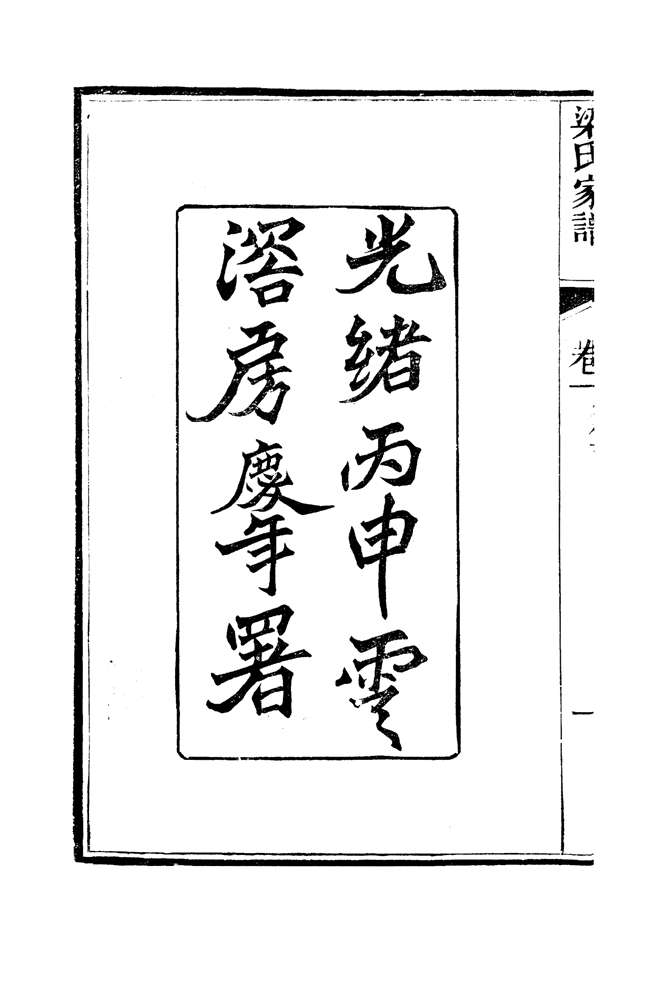 梁氏家譜
卷一
一
光緒丙申雲
溶房慶年署